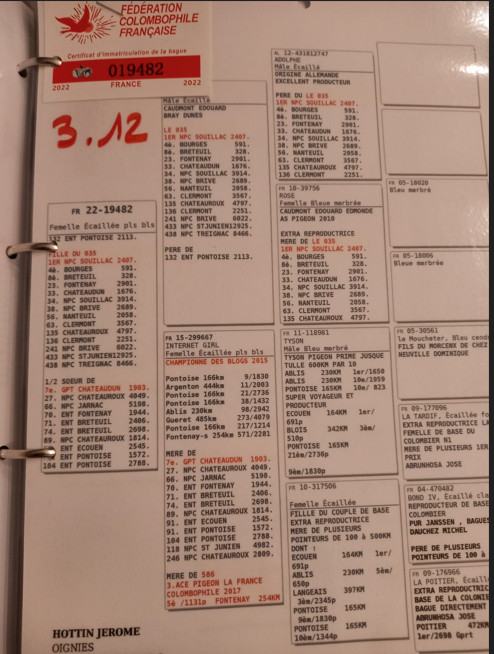 FÉDÉRATION
COLOMBOPHILE
FRANÇAISE
Certificat d'immatriculation de la bague
019482
2022 FRANCE 2022
3.12
FR 22-19482
Femelle Écaillée pls bls
132 ENT PONTOISE 2113.
FILLE DU 035
1ER NPC SOUILLAC 2407.
4è. BOURGES 591.
8è. BRETEUIL 328.
23. FONTENAY 2901.
33. CHATEAUDUN 1676.
34. NPC SOUILLAC 3914.
38. NPC BRIVE 2689.
56. NANTEUIL 2058.
63. CLERMONT 3567.
135 CHATEAUROUX 4797.
136 CLERMONT 2251.
241 NPC BRIVE 6022.
433 NPC STJUNIEN12925.
438 NPC TREIGNAC 8466.
1/2 SOEUR DE
7e. GPT CHATEAUDUN 1903.
27. NPC CHATEAUROUX 4049.
66. NPC JARNAC 5198.
70. ENT FONTENAY 1944.
71. ENT BRETEUIL 2406.
74. ENT BRETEUIL 2698.
89. NPC CHATEAUROUX 1814.
91. ENT ECOUEN 2545.
91. ENT PONTOISE 1572.
104 ENT PONTOISE 2788.
HOTTIN JEROME
OIGNIES
Mâle Écaillé
CAUDMONT EDOUARD
BRAY DUNES
LE 035
1ER NPC SOUILLAC 2407.
4è. BOURGES 591.
8è. BRETEUIL 328.
23. FONTENAY 2901.
33. CHATEAUDUN 1676.
34. NPC SOUILLAC 3914.
38. NPC BRIVE 2689.
56. NANTEUIL 2058.
63. CLERMONT 3567.
135 CHATEAUROUX 4797.
136 CLERMONT 2251.
241 NPC BRIVE 6022.
433 NPC ST.JUNIEN12925.
438 NPC TREIGNAC 8466.
PERE DE
132 ENT PONTOISE 2113.
FR 15-299667
INTERNET GIRL
Femelle Écaillée pls bls
CHAMPIONNE DES BLOGS 2015
Pontoise 166km 9/1830
Argenton 444km 11/2003
Pontoise 166km 21/2736
Pontoise 166km 38/1432
Ablis 230km 98/2942
Gueret 485km 273/4079
Pontoise 166km 217/1214
Fontenay-s 254km 571/2281
MERE DE
7e. GPT CHATEAUDUN 1903.
27. NPC CHATEAUROUX 4049.
66. NPC JARNAC 5198.
70. ENT FONTENAY 1944.
71. ENT BRETEUIL 2406.
74. ENT BRETEUIL 2698.
89. NPC CHATEAUROUX 1814.
91. ENT ECOUEN 2545.
91. ENT PONTOISE 1572.
104 ENT PONTOISE 2788.
118 NPC ST JUNIEN 4982.
246 NPC CHATEAUROUX 2809.
MERE DE 586
3.ACE PIGEON LA FRANCE
COLOMBOPHILE 2017
5è /1131p FONTENAY 254KM
AL 12-431812747
ADOLPHE
Mâle Écaillé
ORIGINE ALLEMANDE
EXCELLENT PRODUCTEUR
PERE DU LE 035
1ER NPC SOUILLAC 2407.
4è. BOURGES 591.
8è. BRETEUIL 328.
23. FONTENAY 2901.
33. CHATEAUDUN 1676.
34. NPC SOUILLAC 3914.
38. NPC BRIVE 2689.
56. NANTEUIL 2058.
63. CLERMONT 3567.
135 CHATEAUROUX 4797.
136 CLERMONT 2251.
FR 10-39756
ROSE
Femelle Bleue marbrée
CAUDMONT EDOUARD EDMONDE
AS PIGEON 2010
EXTRA REPRODUCTRICE
MERE DE LE 035
1ER NPC SOUILLAC 2407.
4è. BOURGES 591.
8è. BRETEUIL 328.
23. FONTENAY 2901.
33. CHATEAUDUN 1676.
34. NPC SOUILLAC 3914.
38. NPC BRIVE 2689.
56. NANTEUIL 2058.
63. CLERMONT 3567.
135 CHATEAUROUX 4797.
FR 11-118981
TYSON
Mâle Bleu marbré
TYSON PIGEON PRIME JUSQUE
TULLE 600KM PAR 10
ABLIS 230KM 1er/1650
ABLIS 230KM 10e/1959
PONTOISE 165KM 10e/ 823
SUPER VOYAGEUR ET
PRODUCTEUR
ECOUEN 164KM 1er/
691p
BLOIS 342KM 3èm/
510p
PONTOISE 165KM
21èm/2736p
9èm/1830p
FR 10-317506
Femelle Écaillée
FILLLE DU COUPLE DE BASE
EXTRA REPRODUCTRICE
MERE DE PLUSIEURS
POINTEURS DE 100 à 500KM
DONT :
ECOUEN 164KM 1er/
691p
ABLIS 230KM 5èm/
650p
LANGEAIS 397KM
3èm/2345p
PONTOISE 165KM
9èm/1830p
PONTOISE 165KM
10èm/1344p
FR 05-18020
Bleu marbré
FR 05-18006
Bleue marbrée
FR 05-30561
le Moucheter, Bleu cend
FILS DU MORCENX DE CHEZ
NEUVILLE DOMINIQUE
FR 09-177096
LA TARDIF, Écaillée fo
EXTRA REPRODUCTRICE LA
FEMELLE DE BASE DU
COLOMBIER N1
MERE DE PLUSIEURS 1ER
PRIX
ABRUNHOSA JOSE
FR 04-470482
BOND IV, Écaillé cla
REPRODUCTEUR DE BASE
COLOMBIER
PUR JANSSEN , BAGUES
DAUCHEZ MICHEL
PERE DE PLUSIEURS
POINTEURS DE 100 à
FR 09-176966
LA POITIER, Écaill
EXTRA REPRODUCTRIC
BASE DE LA COLONIE
BAGUE DIRECTEMENT
ABRUNHOSA JOSE
POITIER 472KM
1er/2698 Gprt